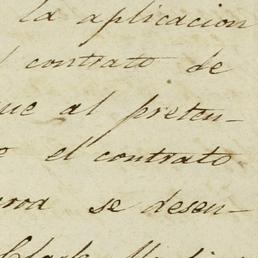 la aplicacion
contrato de
que al preten-
el contrato
se desen-
Clark